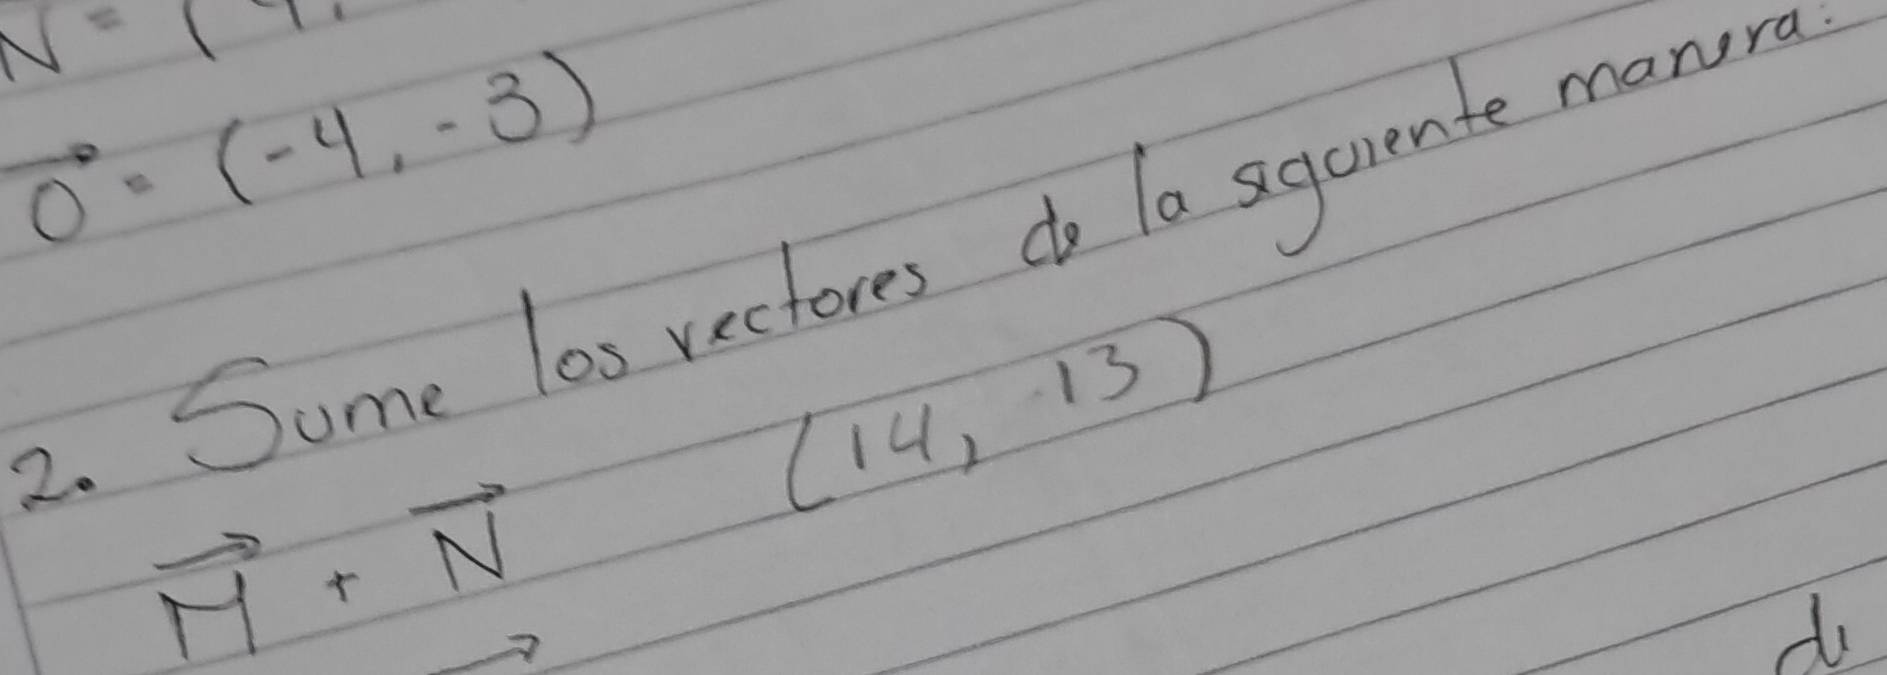 N = (
O = (-4, -3)
2. Sume los vectores de la siguiente manera:
M + N (14, -13)
de